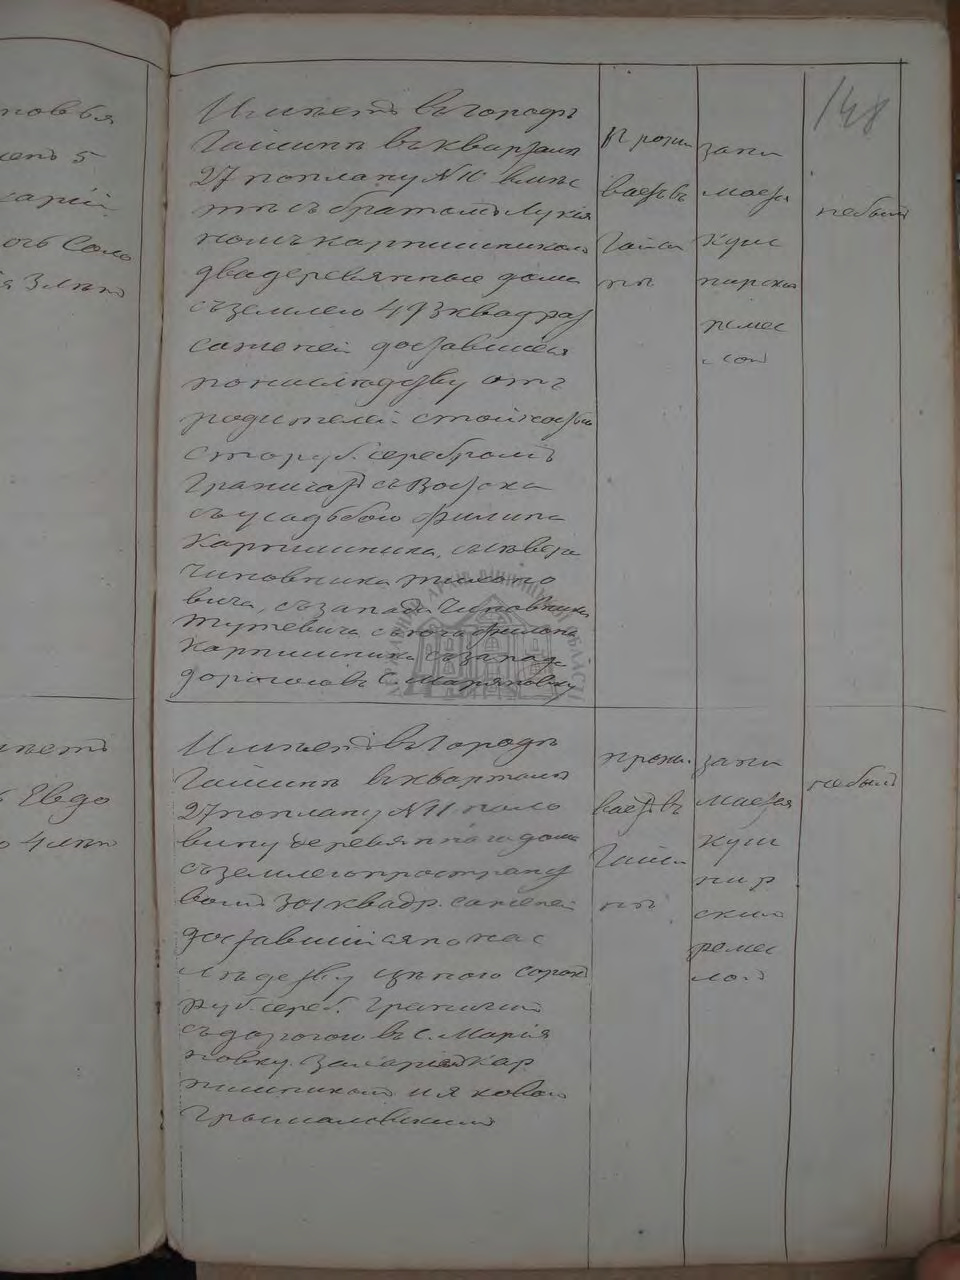 148
новья
5
карій
Соло
Имѣетъ въ городѣ
Гайсинѣ въ кварталѣ
27 по плану № 10 вмѣс
тѣ съ братомъ Лукія
номъ Карпишникомъ
два деревянные дома
съ землею 493 квадрат
саженей доставшіеся
по наслѣдству отъ
родителей стоимостью
сто руб. серебромъ
граничатъ съ востока
съ усадьбою Филипа
Карпишника, съ севера
чиновника
вича, съ запада чиновника
съ юга Филипа
Карпишника съ запада
дорогою въ с. Маряновку
прожи
ваетъ въ
Гайси
нѣ
зани
мается
куш
нирским
ремес
лом
не былъ
Евдо
Имѣетъ въ городѣ
Гайсинѣ въ кварталѣ
27 по плану № 11 поло
вину деревяннаго дома
съ землею пространст
вомъ 301 квадр. саженей
доставшійся по нас
лѣдству цѣною сорокъ
руб. сереб. граничитъ
съ дорогою въ с. Марія
новку. Захаріемъ Кар
пишникомъ и Яковомъ
прожи
ваетъ въ
Гайси
нѣ
зани
мается
куш
нир
ским
ремес
лом
не былъ
ДЕРЖАВНИЙ АРХІВ ВІННИЦЬКОЇ ОБЛАСТІ